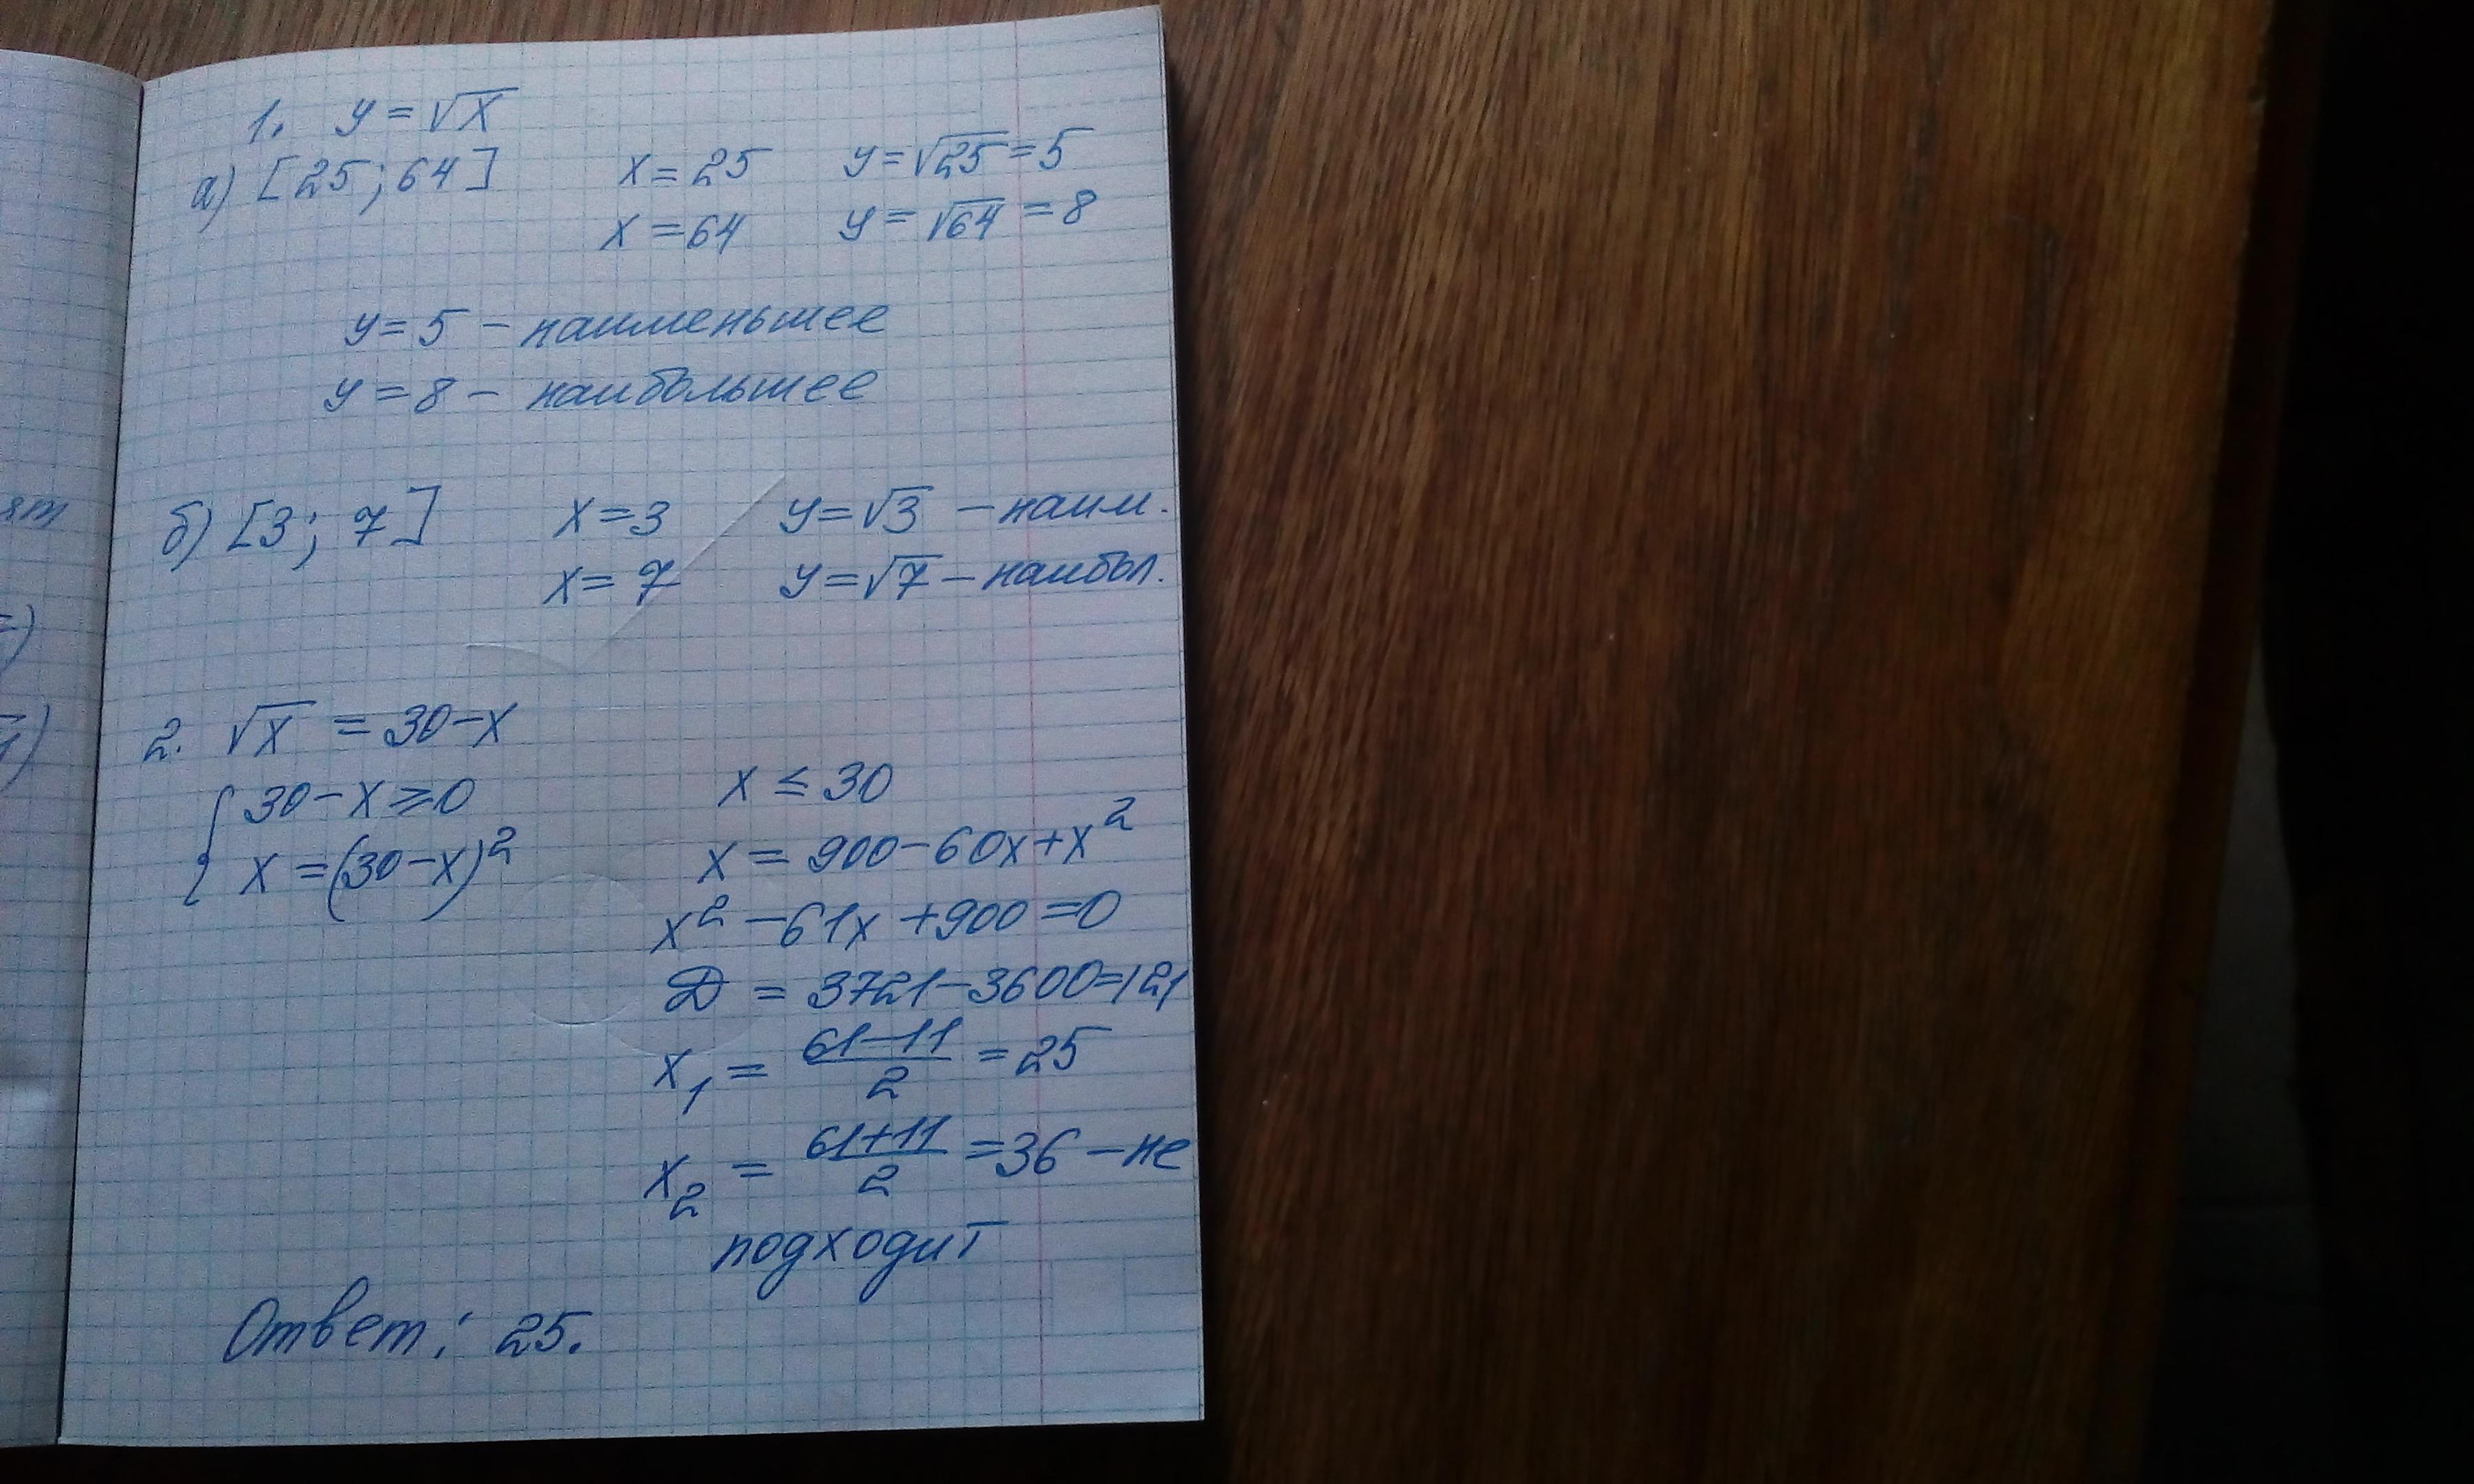 1. y = √x
а) [25; 64] x = 25 y = √25 = 5
x = 64 y = √64 = 8
y = 5 – наименьшее
y = 8 – наибольшее
б) [3; 7] x = 3 y = √3 – наим.
x = 7 y = √7 – наибол.
2. √x = 30 – x
{ 30 – x ⩾ 0 x ≤ 30
x = (30 – x)² x = 900 – 60x + x²
x² – 61x + 900 = 0
D = 3721 – 3600 = 121
x₁ = (61 – 11)/2 = 25
x₂ = (61 + 11)/2 = 36 – не
подходит
Ответ: 25.